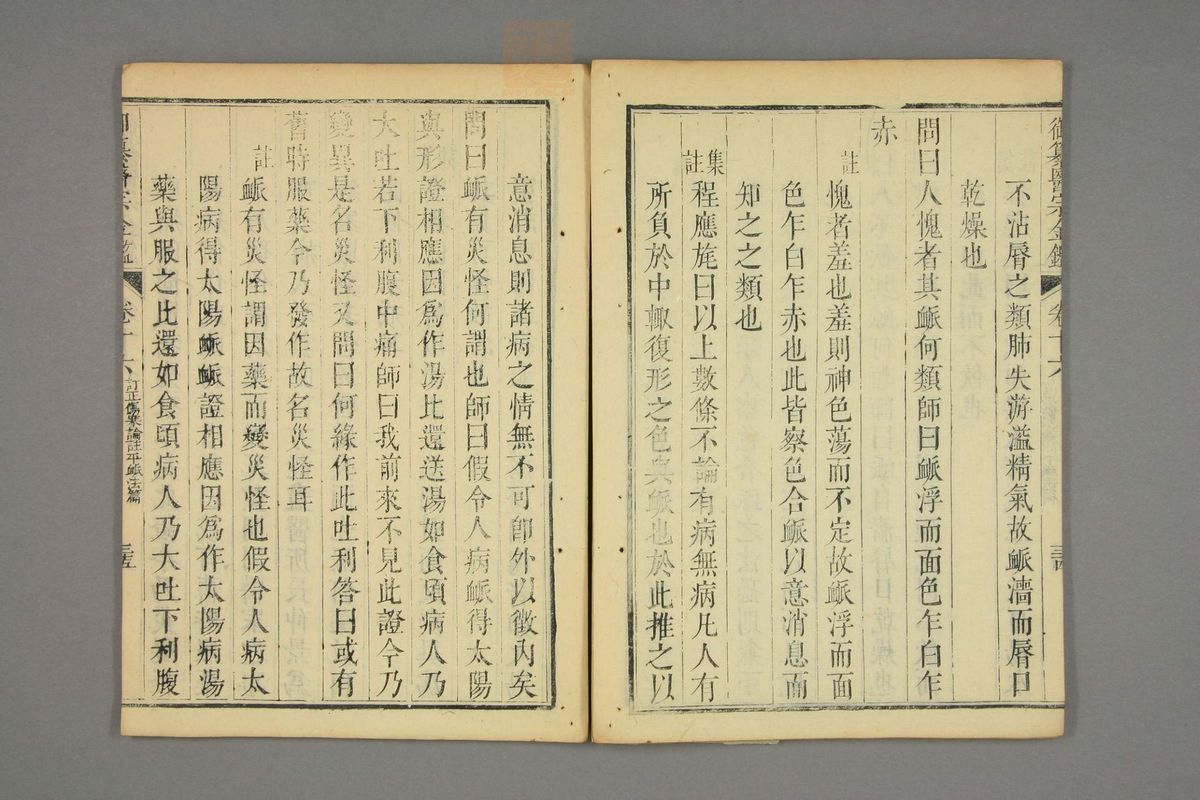 御纂醫宗金鑑 卷十六 三四
不沾脣之類肺失游溢精氣故䘑濇而脣口
乾燥也
問曰人愧者其䘑何類師曰䘑浮而面色乍白乍
赤
註 愧者羞也羞則神色蕩而不定故䘑浮而面
色乍白乍赤也此皆察色合䘑以意消息而
知之之類也
集註 程應旄曰以上數條不論有病無病凡人有
所負於中輙復形之色與䘑也於此推之以
意消息則諸病之情無不可卽外以徵內矣
問曰䘑有災怪何謂也師曰假令人病䘑得太陽
與形證相應因爲作湯比還送湯如食頃病人乃
大吐若下利腹中痛師曰我前來不見此證今乃
變異是名災怪又問曰何緣作此吐利答曰或有
舊時服藥今乃發作故名災怪耳
註 䘑有災怪謂因藥而變災怪也假令人病太
陽病得太陽䘑䘑證相應因爲作太陽病湯
藥與服之比還如食頃病人乃大吐下利腹
御纂醫宗金鑑 卷十六 訂正傷寒論註平䘑法篇 三五